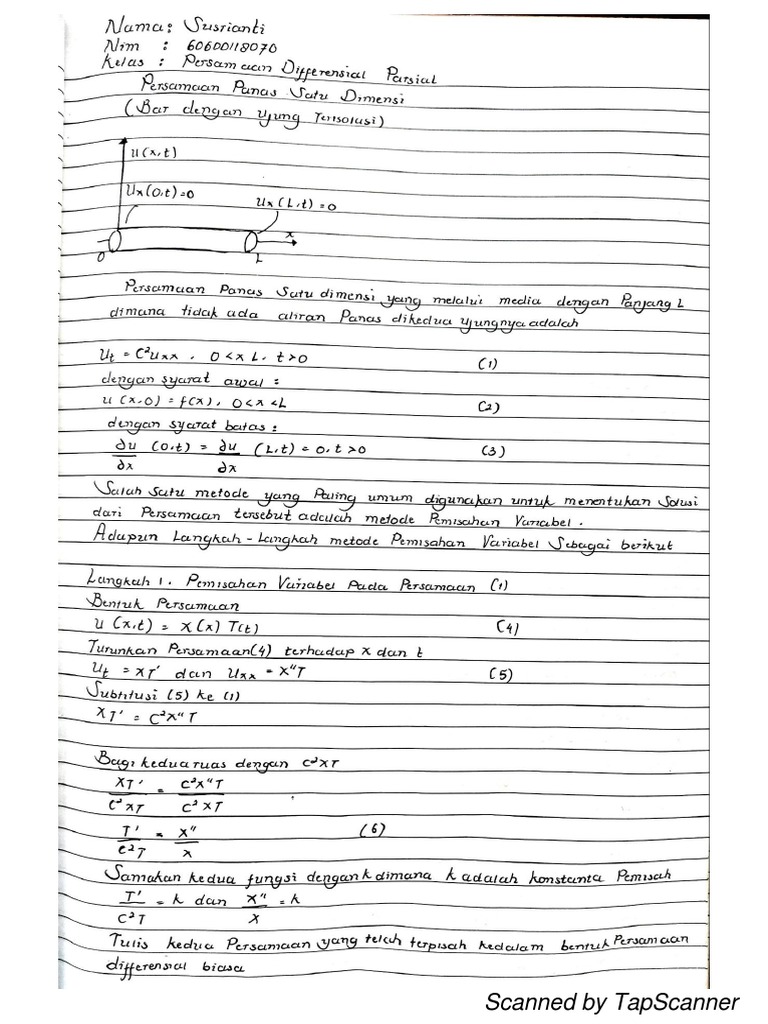 Nama: Susrianti
Nim : 60600118070
Kelas : Persamaan Differensial Parsial
Persamaan Panas Satu Dimensi
(Bar dengan ujung Terisolusi)
u(x,t)
Ux(0,t)=0
Ux(L,t)=0
x
0 L
Persamaan Panas Satu dimensi yang melalui media dengan Panjang L
dimana tidak ada aliran Panas dikedua ujungnya adalah
Ut = C²Uxx , 0 < x L, t > 0 (1)
dengan syarat awal :
u (x,0) = f(x), 0 < x < L (2)
dengan syarat batas :
∂u/∂x (0,t) = ∂u/∂x (L,t) = 0, t > 0 (3)
Salah satu metode yang Paling umum digunakan untuk menentukan Solusi
dari Persamaan tersebut adalah metode Pemisahan Variabel.
Adapun Langkah-Langkah metode Pemisahan Variabel Sebagai berikut
Langkah 1. Pemisahan Variabel Pada Persamaan (1)
Bentuk Persamaan
u (x,t) = X(x) T(t) (4)
Turunkan Persamaan(4) terhadap x dan t
Ut = XT' dan Uxx = X"T (5)
Subtitusi (5) ke (1)
XT' = C²X"T
Bagi kedua ruas dengan C²XT
XT'/C²XT = C²X"T/C²XT
T'/C²T = X"/X (6)
Samakan kedua fungsi dengan k dimana k adalah konstanta Pemisah
T'/C²T = k dan X"/X = k
Tulis kedua Persamaan yang telah terpisah kedalam bentuk Persamaan
differensial biasa
Scanned by TapScanner